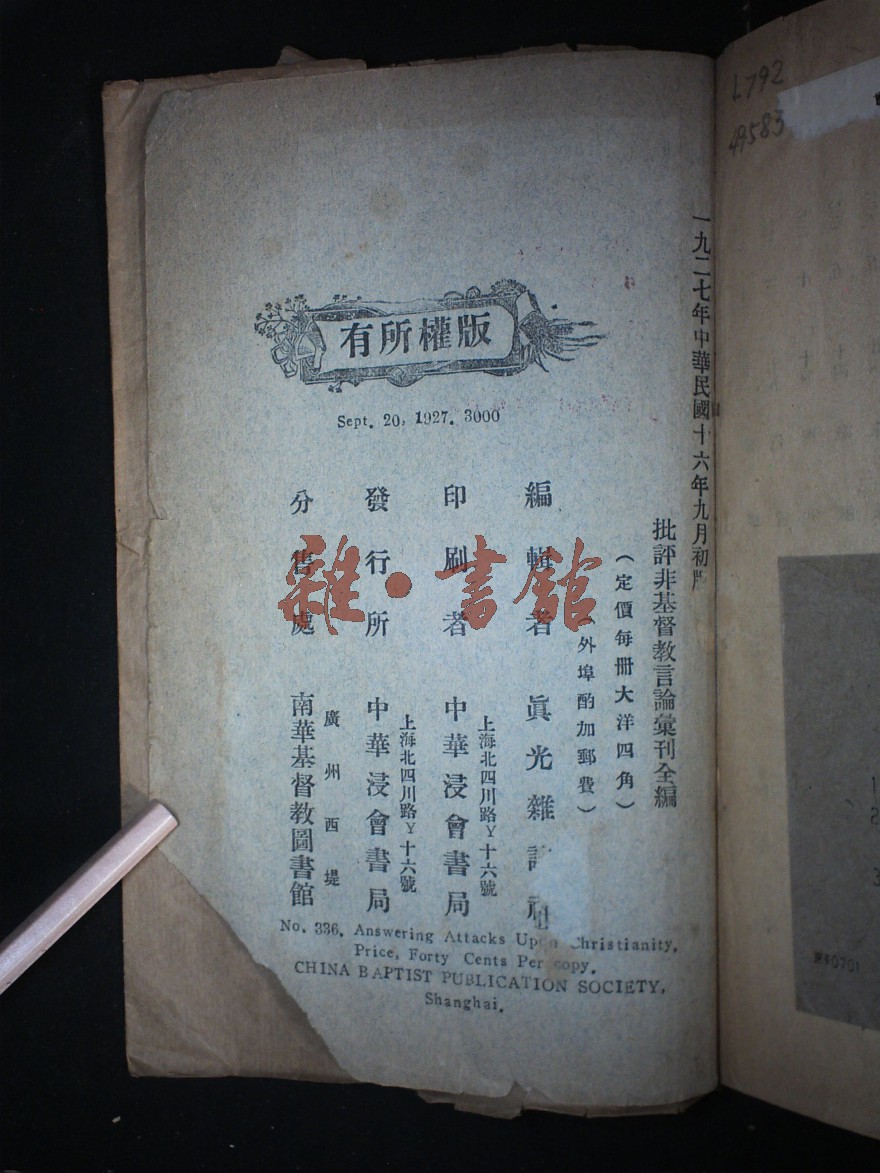 L792
49583
一九二七年中華民國十六年九月初版
批評非基督教言論彙刊全編
(定價每冊大洋四角)
(外埠酌加郵費)
有所權版
Sept. 20, 1927. 3000
編輯者 眞光雜誌社
印刷者 上海北四川路Y十六號 中華浸會書局
發行所 上海北四川路Y十六號 中華浸會書局
分售處 廣州西堤 南華基督教圖書館
No. 336, Answering Attacks Upon Christianity.
Price, Forty Cents Per copy.
CHINA BAPTIST PUBLICATION SOCIETY,
Shanghai.
雜·書館